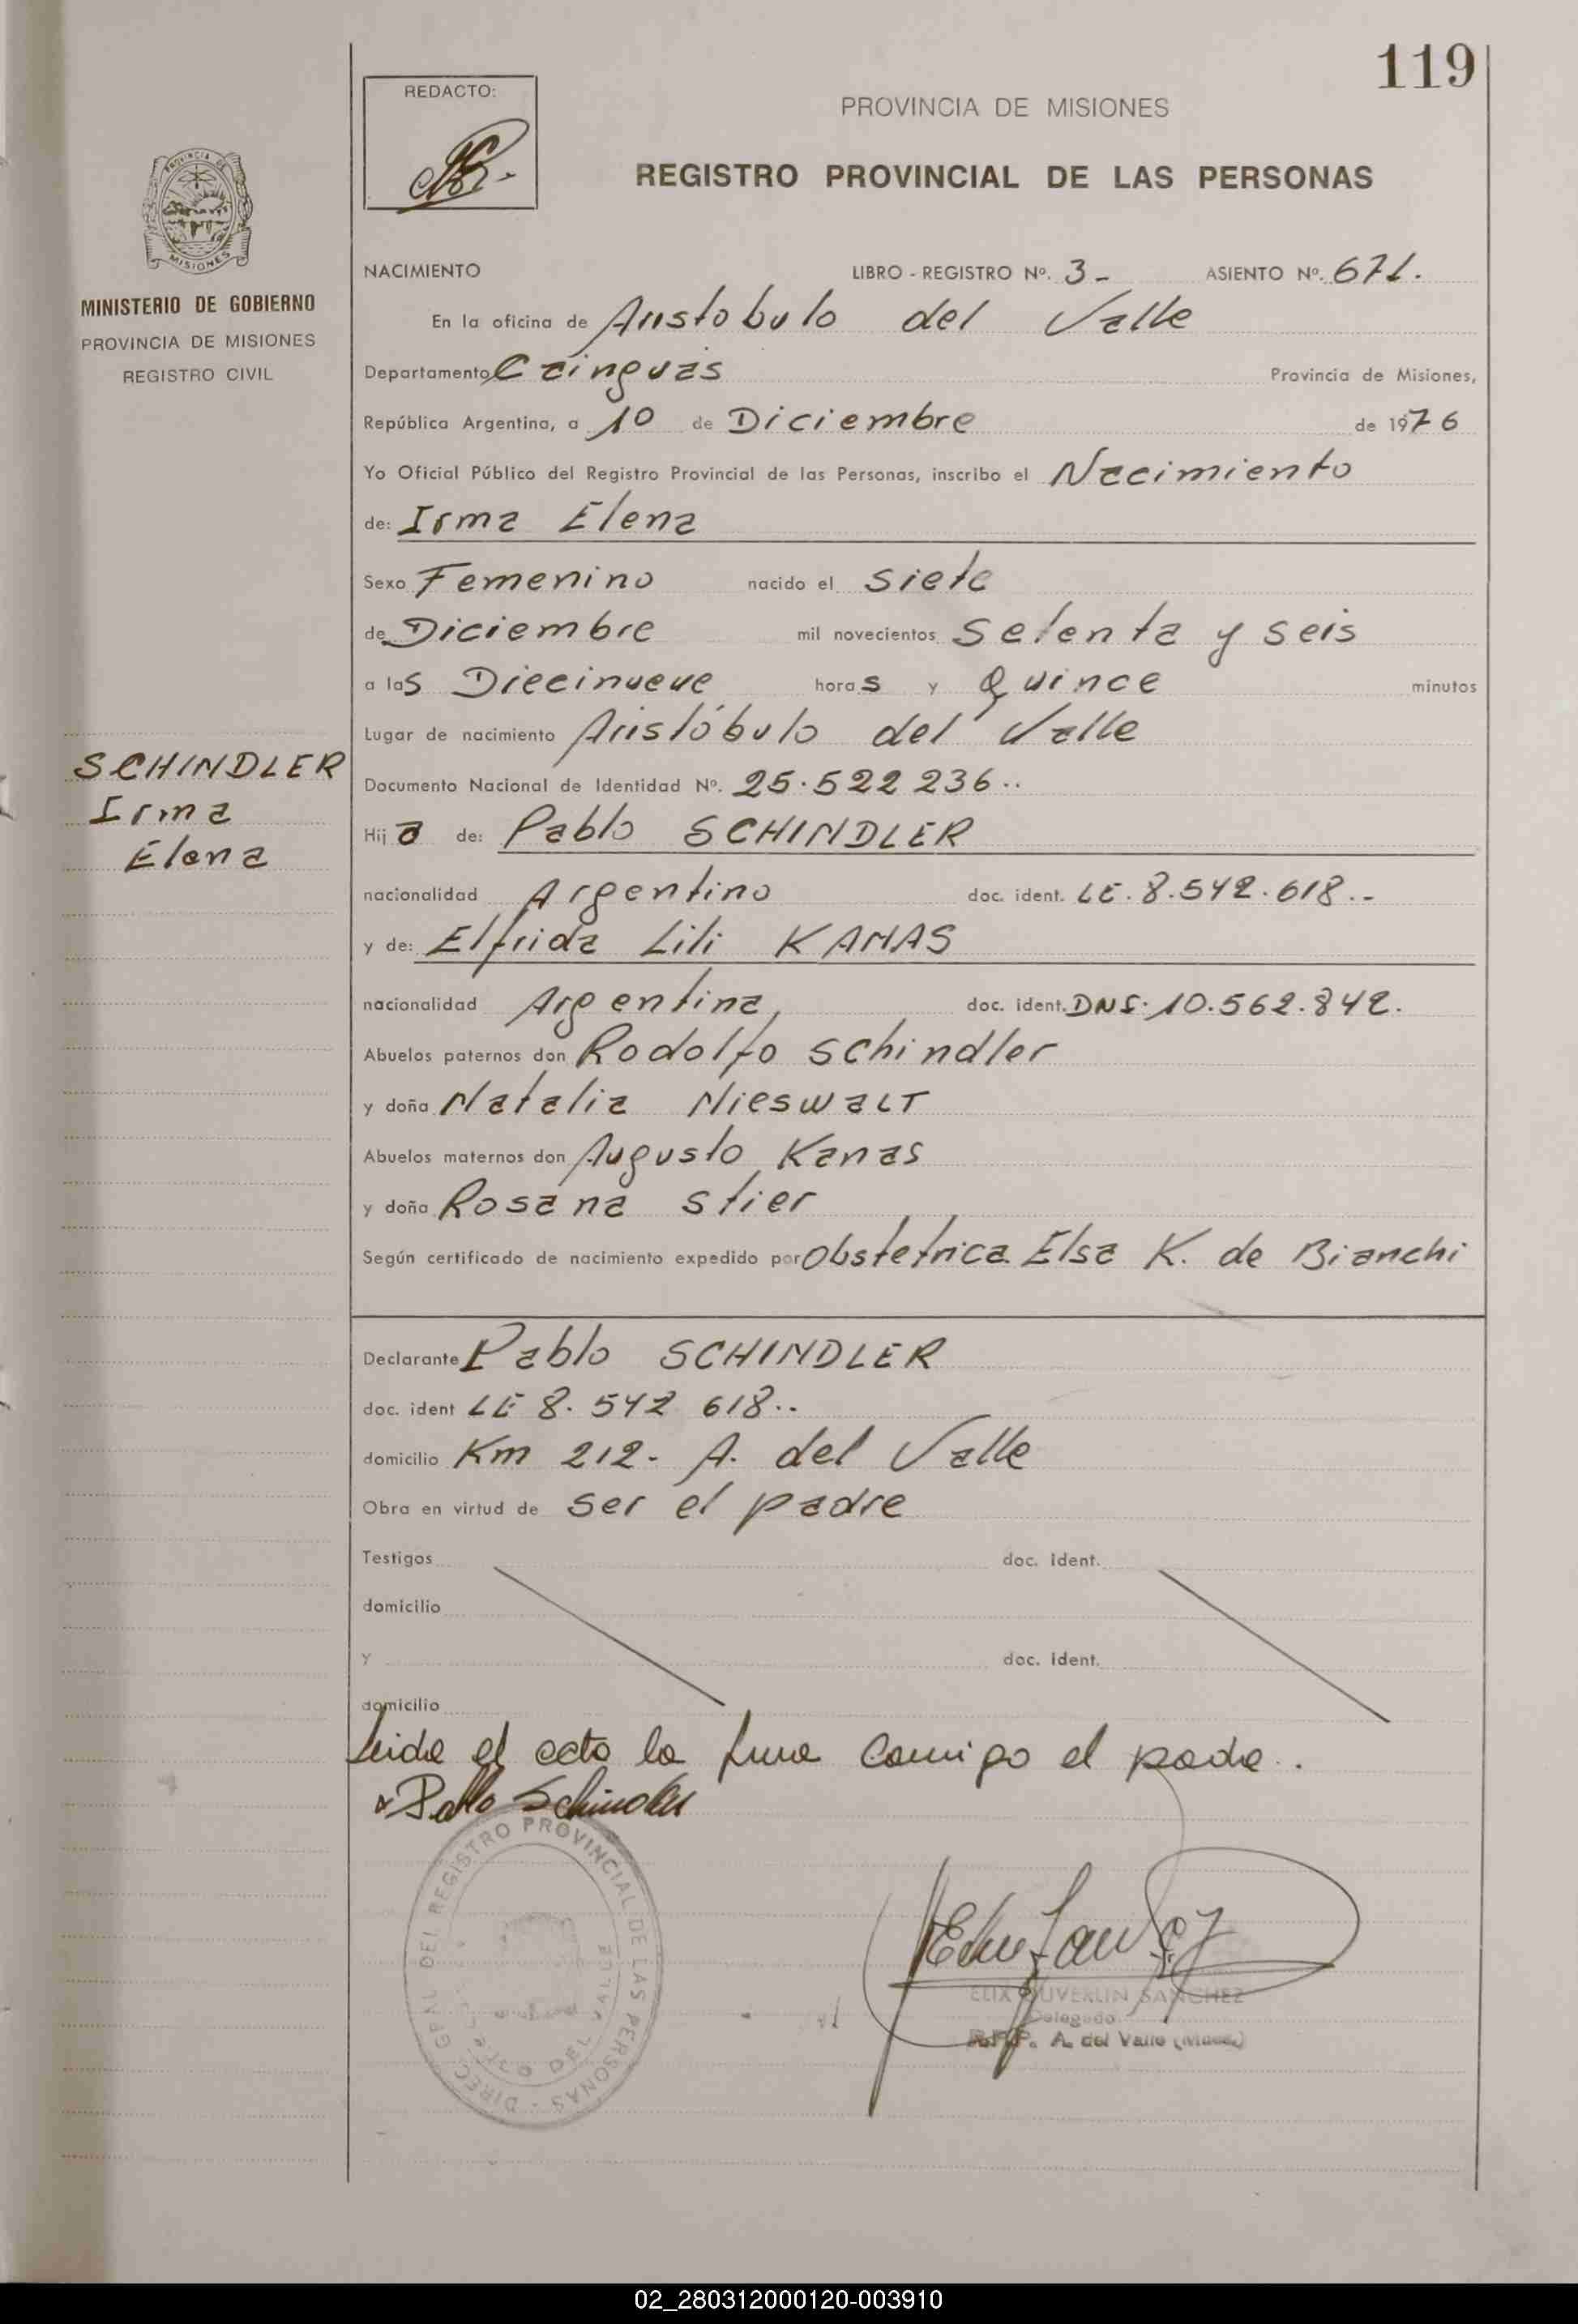 119
REDACTO:
PROVINCIA DE MISIONES
REGISTRO PROVINCIAL DE LAS PERSONAS
PROVINCIA DE
MISIONES
MINISTERIO DE GOBIERNO
PROVINCIA DE MISIONES
REGISTRO CIVIL
NACIMIENTO LIBRO - REGISTRO Nº. 3 - ASIENTO Nº. 671.
En la oficina de Aristobulo del Valle
Departamento Cainguás Provincia de Misiones,
República Argentina, a 10 de Diciembre de 1976
Yo Oficial Público del Registro Provincial de las Personas, inscribo el Nacimiento
de: Irma Elena
Sexo Femenino nacido el siete
de Diciembre mil novecientos setenta y seis
a las Diecinueve horas y Quince minutos
Lugar de nacimiento Aristóbulo del Valle
SCHINDLER
Irma
Elena
Documento Nacional de Identidad Nº. 25.522 236..
Hija de: Pablo SCHINDLER
nacionalidad Argentino doc. ident. LE. 8.542.618.-
y de: Elfrida Lili KANAS
nacionalidad Argentina, doc. ident. DNI. 10.562.842.
Abuelos paternos don Rodolfo Schindler
y doña Natalia Nieswalt
Abuelos maternos don Augusto Kanas
y doña Rosana Stier
Según certificado de nacimiento expedido por Obstetrica Elsa K. de Bianchi
Declarante Pablo SCHINDLER
doc. ident LE 8. 542 618..
domicilio Km 212- A. del Valle
Obra en virtud de ser el padre
Testigos doc. ident.
domicilio
y doc. ident.
domicilio
Leida el acta la firma conmigo el padre.
Pablo Schindler
DIREC. GRAL DEL REGISTRO PROVINCIAL DE LAS PERSONAS -
DEL VALLE
SANCHEZ
Delegado
R.P.P. A. del Valle (Mnes.)
02_280312000120-003910